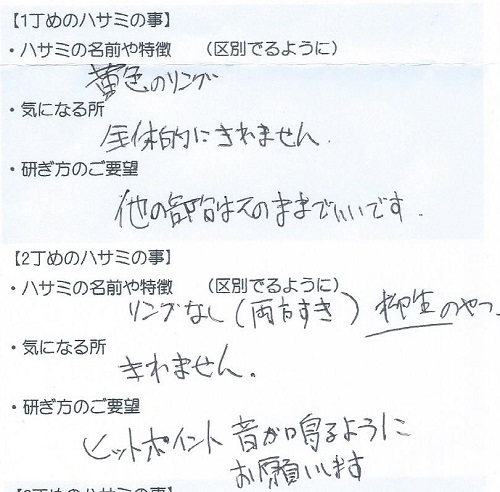 【1丁めのハサミの事】
・ハサミの名前や特徴　（区別でるように）
黄色のリング
・気になる所
全体的にきれません．
・研ぎ方のご要望
他の部分はそのままでいいです．
【2丁めのハサミの事】
・ハサミの名前や特徴　（区別でるように）
リングなし（両方すき）柳生のやつ、
・気になる所
きれません。
・研ぎ方のご要望
ヒットポイント 音が鳴るように
お願いします